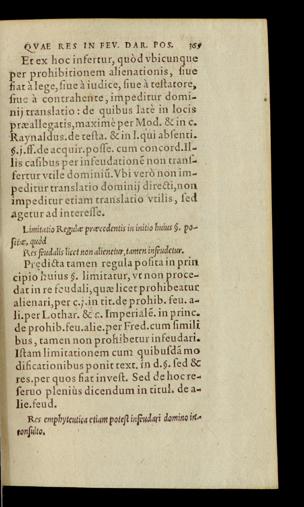 QVAE RES IN FEV. DAR. POS. 369
Et ex hoc infertur, quòd vbicunque
per prohibitionem alienationis, siue
fiat à lege, siue à iudice, siue à testatore,
siue à contrahente, impeditur domi-
nij translatio: de quibus latè in locis
præallegatis, maximè per Mod. & in c.
Raynaldus. de testa. & in l. qui absenti.
§. j. ff. de acquir. posse. cum concord. Il-
lis casibus per infeudationẽ non trans-
fertur vtile dominiũ. Vbi verò non im-
peditur translatio dominij directi, non
impeditur etiam translatio vtilis, sed
agetur ad interesse.
Limitatio Regulæ præcedentis in initio huius §. po-
sitæ, quòd
Res feudalis licet non alienetur, tamen infeudetur.
Prędicta tamen regula posita in prin
cipio huius §. limitatur, vt non proce-
dat in re feudali, quæ licet prohibeatur
alienari, per c. j. in tit. de prohib. feu. a-
li. per Lothar. & c. Imperialẽ. in princ.
de prohib. feu. alie. per Fred. cum simili
bus, tamen non prohibetur infeudari.
Istam limitationem cum quibusdã mo
dificationibus ponit text. in d. §. sed &
res. per quos fiat invest. Sed de hoc re-
seruo pleniùs dicendum in titul. de a-
lie. feud.
Res emphyteutica etiam potest infeudari domino in-
consulto.